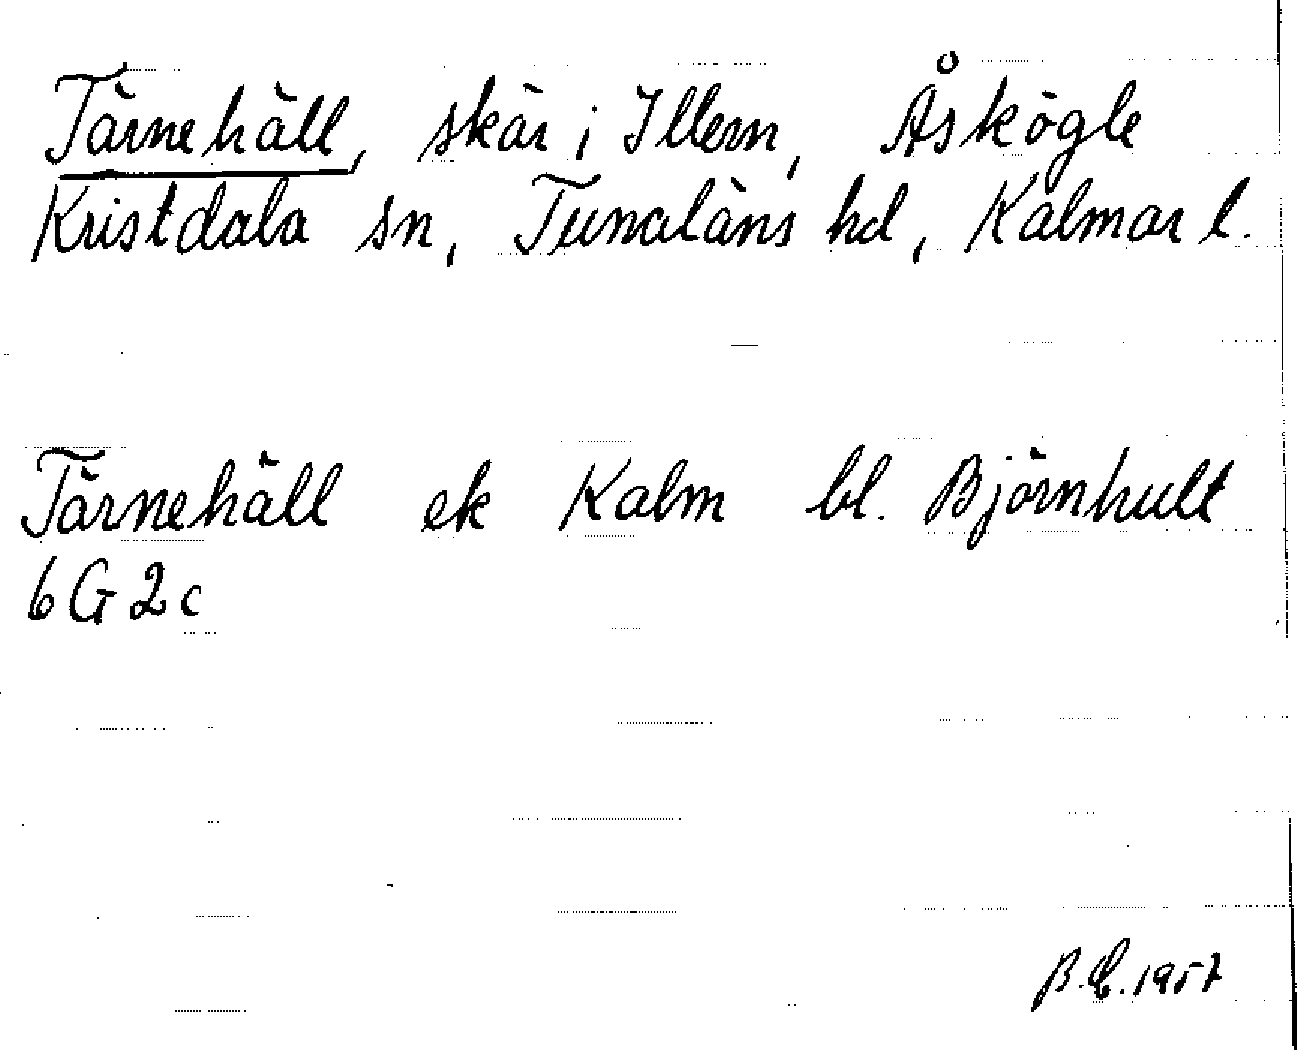 Tärnehäll, skär i Illern, Åskögle
Kristdala sn, Tunaläns hd, Kalmar l.
Tärnehäll ek Kalm bl. Björnhult
6 G 2 c
B.E. 1957